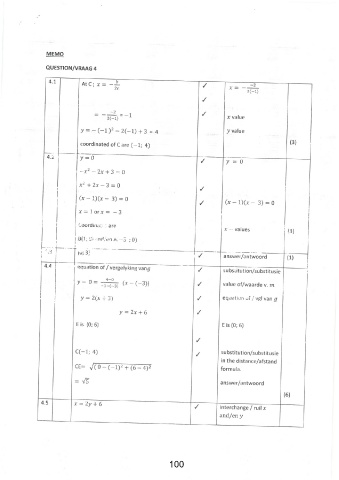 MEMO
QUESTION/VRAAG 4
4.1 At C ; x = - b/2a ✓ x = - -2/2(-1)
✓
= - -2/2(-1) = -1 ✓ x value
y = -(-1)² - 2(-1) + 3 = 4 y value
coordinated of C are (-1; 4) (3)
y = 0 ✓ y = 0
-x² - 2x + 3 = 0
x² + 2x - 3 = 0 ✓
(x - 1)(x - 3) = 0 ✓ (x - 1)(x - 3) = 0
x = 1 or x = - 3
are x - values
✓ answer/antwoord (1)
4.4 equation of / vergelyking vang ✓ substitution/substitusie
(x - (-3)) ✓ value of/waarde v. m
y = 2(x + 3) ✓ equation of / vgl van g
y = 2x + 6 ✓
E is (0; 6) E is (0; 6)
✓
C(-1; 4) ✓ substitution/substitusie
in the distance/afstand
CE= √(0 - (-1)² + (6 - 4)² formula.
= √5 answer/antwoord
(6)
4.5 x = 2y + 6 ✓ interchange / ruil x
and/en y
100